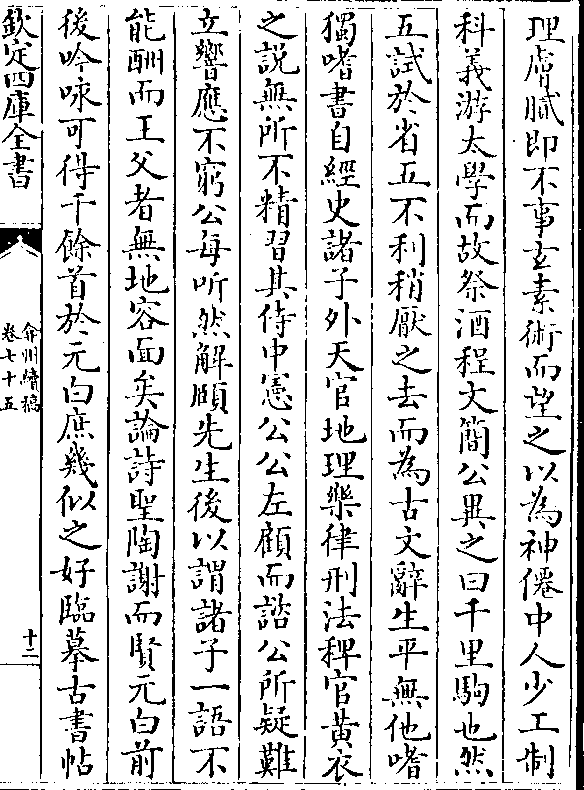 理膚膩即不事玄素術而望之以為神僊中人少工制
科義游太學而故祭酒程文簡公異之曰千里駒也然
五試於省五不利稍厭之去而為古文辭生平無他嗜
獨嗜書自經史諸子外天官地理樂律刑法稗官黃衣
之說無所不精習其侍中憲公公左顧而諮公所疑難
立響應不窮公每听然解頤先生後以謂諸子一語不
能酬而王父者無地容面矣論詩聖陶謝而賢元白前
後吟咏可得千餘首於元白庶幾似之好臨摹古書帖
欽定四庫全書
弇州續稿
卷七十五
十二